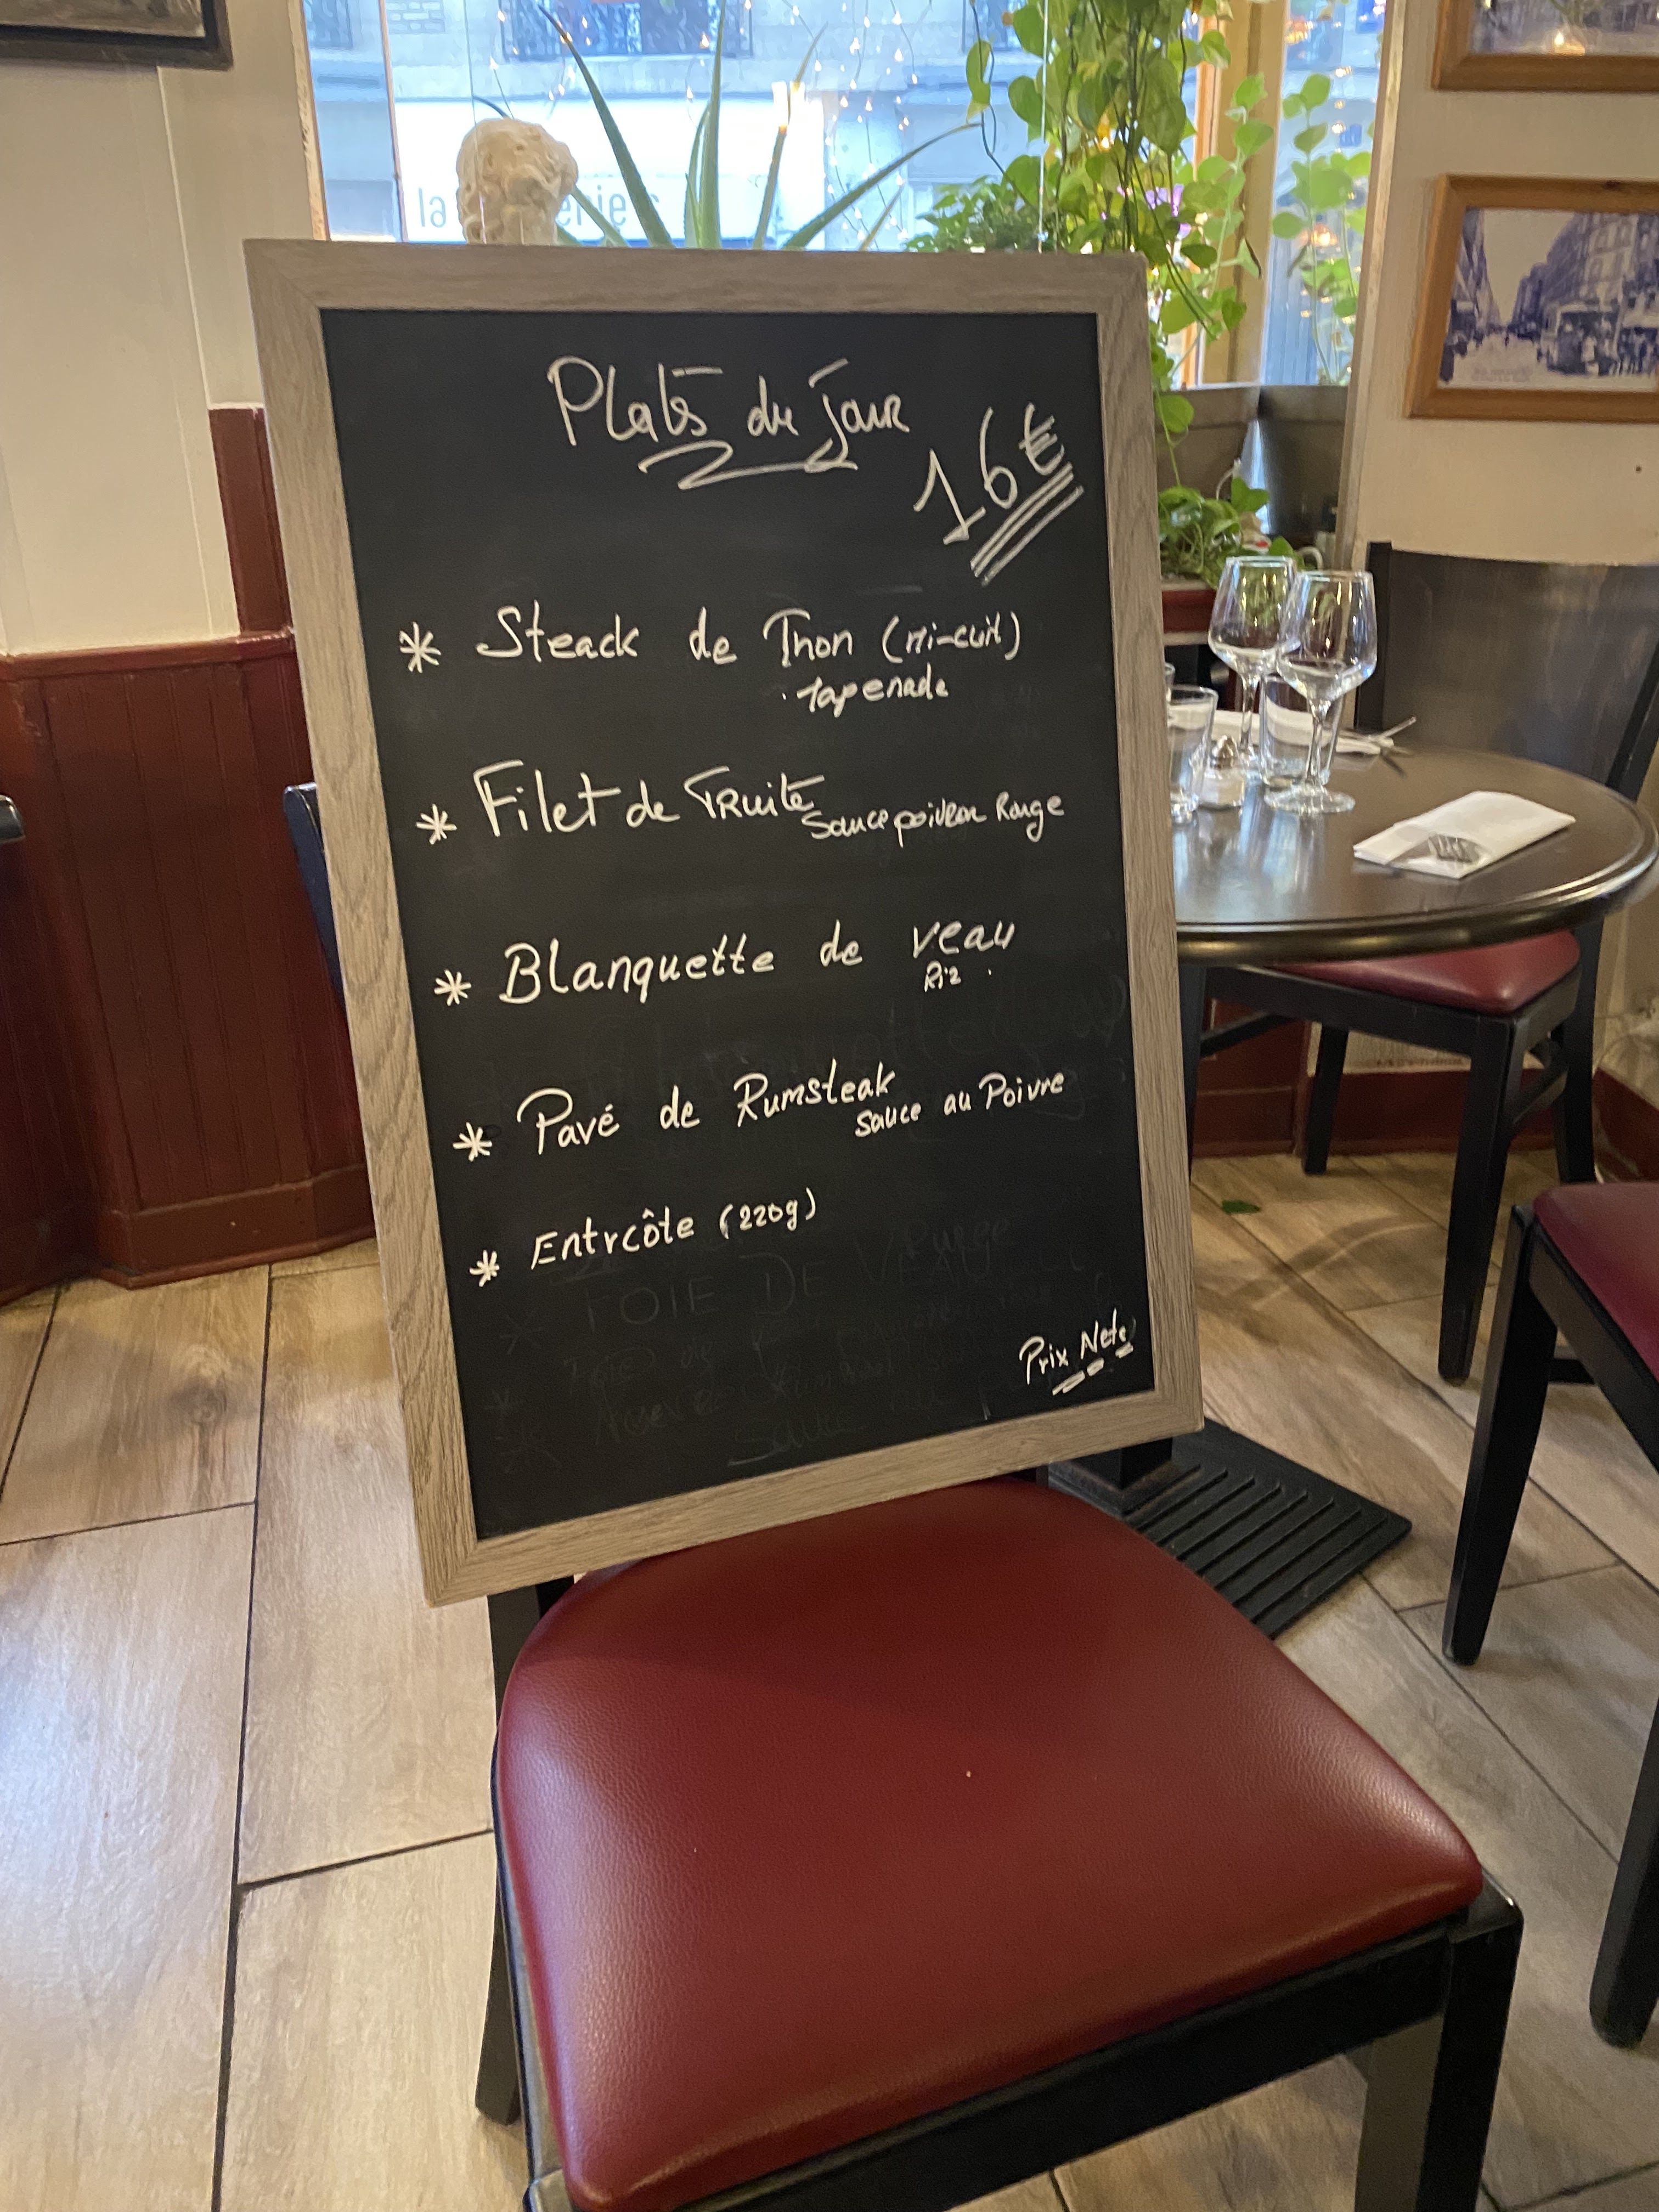 Plats du jour
16€
* Steack de Thon (mi-cuit)
. tapenade
* Filet de Truite
Sauce poivron Rouge
* Blanquette de veau
Riz .
* Pavé de Rumsteak
Sauce au Poivre
* Entrcôte (220g)
FOIE DE VEAU
Prix Nets
la